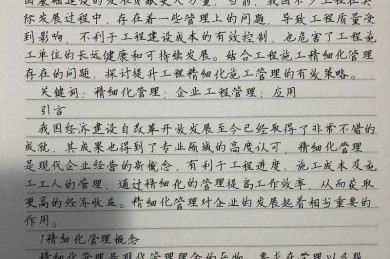 国基础建设的发展贡献更大力量，当前，我国不少工程在实
际发展过程中，存在着一些管理上的问题，导致工程质量受
到影响，不利于工程建设成本的有效控制，也危害了工程施
工单位的长远健康和可持续发展。结合工程施工精细化管理
存在的问题，探讨提升工程精细化施工管理的有效策略。
关键词：精细化管理；企业工程管理；应用
引言
我国经济建设自改革开放发展至今已经取得了非常不错的
成就，其成果也得到了专业领域的高度认可，精细化管理
是现代企业经营的新概念，有利于工程进度、施工成本及施
工工人的管理，通过精细化的管理提高工作效率，从而获取
更高的经济收益。精细化管理对企业的发展起着相当重要的
作用。
1精细化管理概念
精细化管理是现代管理理念的产物，要求在管理以及